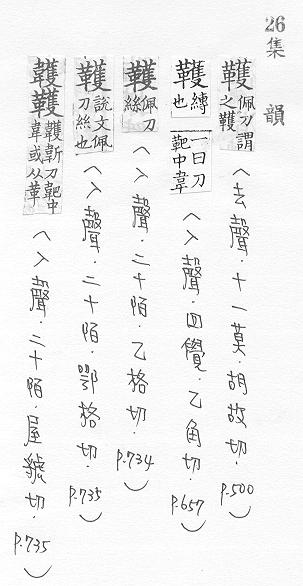 26
集韻
韄佩刀謂之韄〈去聲．十一莫．胡故切．P.500〉
韄縛也一曰刀靶中韋〈入聲．四覺．乙角切．P.657〉
韄佩刀絲〈入聲．二十陌．乙格切．P.734〉
韄說文佩刀絲也〈入聲．二十陌．鄂格切．P.735〉
韄韄靳刀靶中韋或从革〈入聲．二十陌．屋虢切．P.735〉